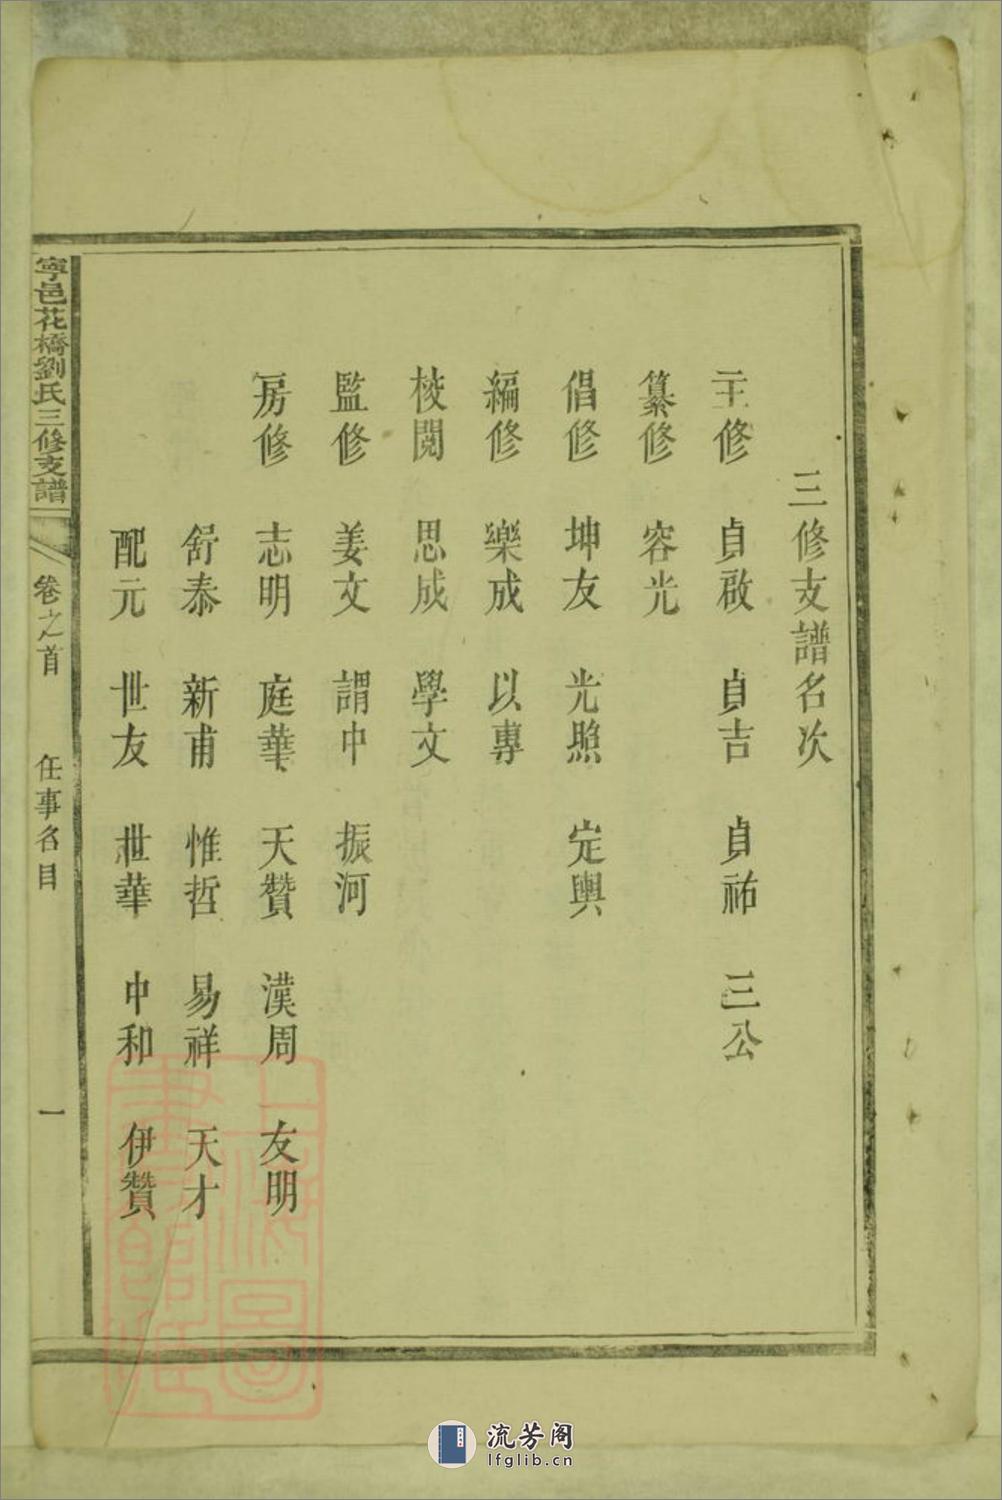 三修支譜名次
主修 貞啟 貞吉 貞祐 三公
纂修 容光
倡修 坤友 光照 定輿
編修 樂成 以專
校閱 思成 學文
監修 姜文 謂中 振河
房修 志明 庭華 天贊 漢周 友明
舒泰 新甫 惟哲 易祥 天才
配元 世友 世華 中和 伊贊
寧邑花橋劉氏三修支譜 卷之首 任事名目 一
上海圖書館藏
流芳阁
lfglib.cn